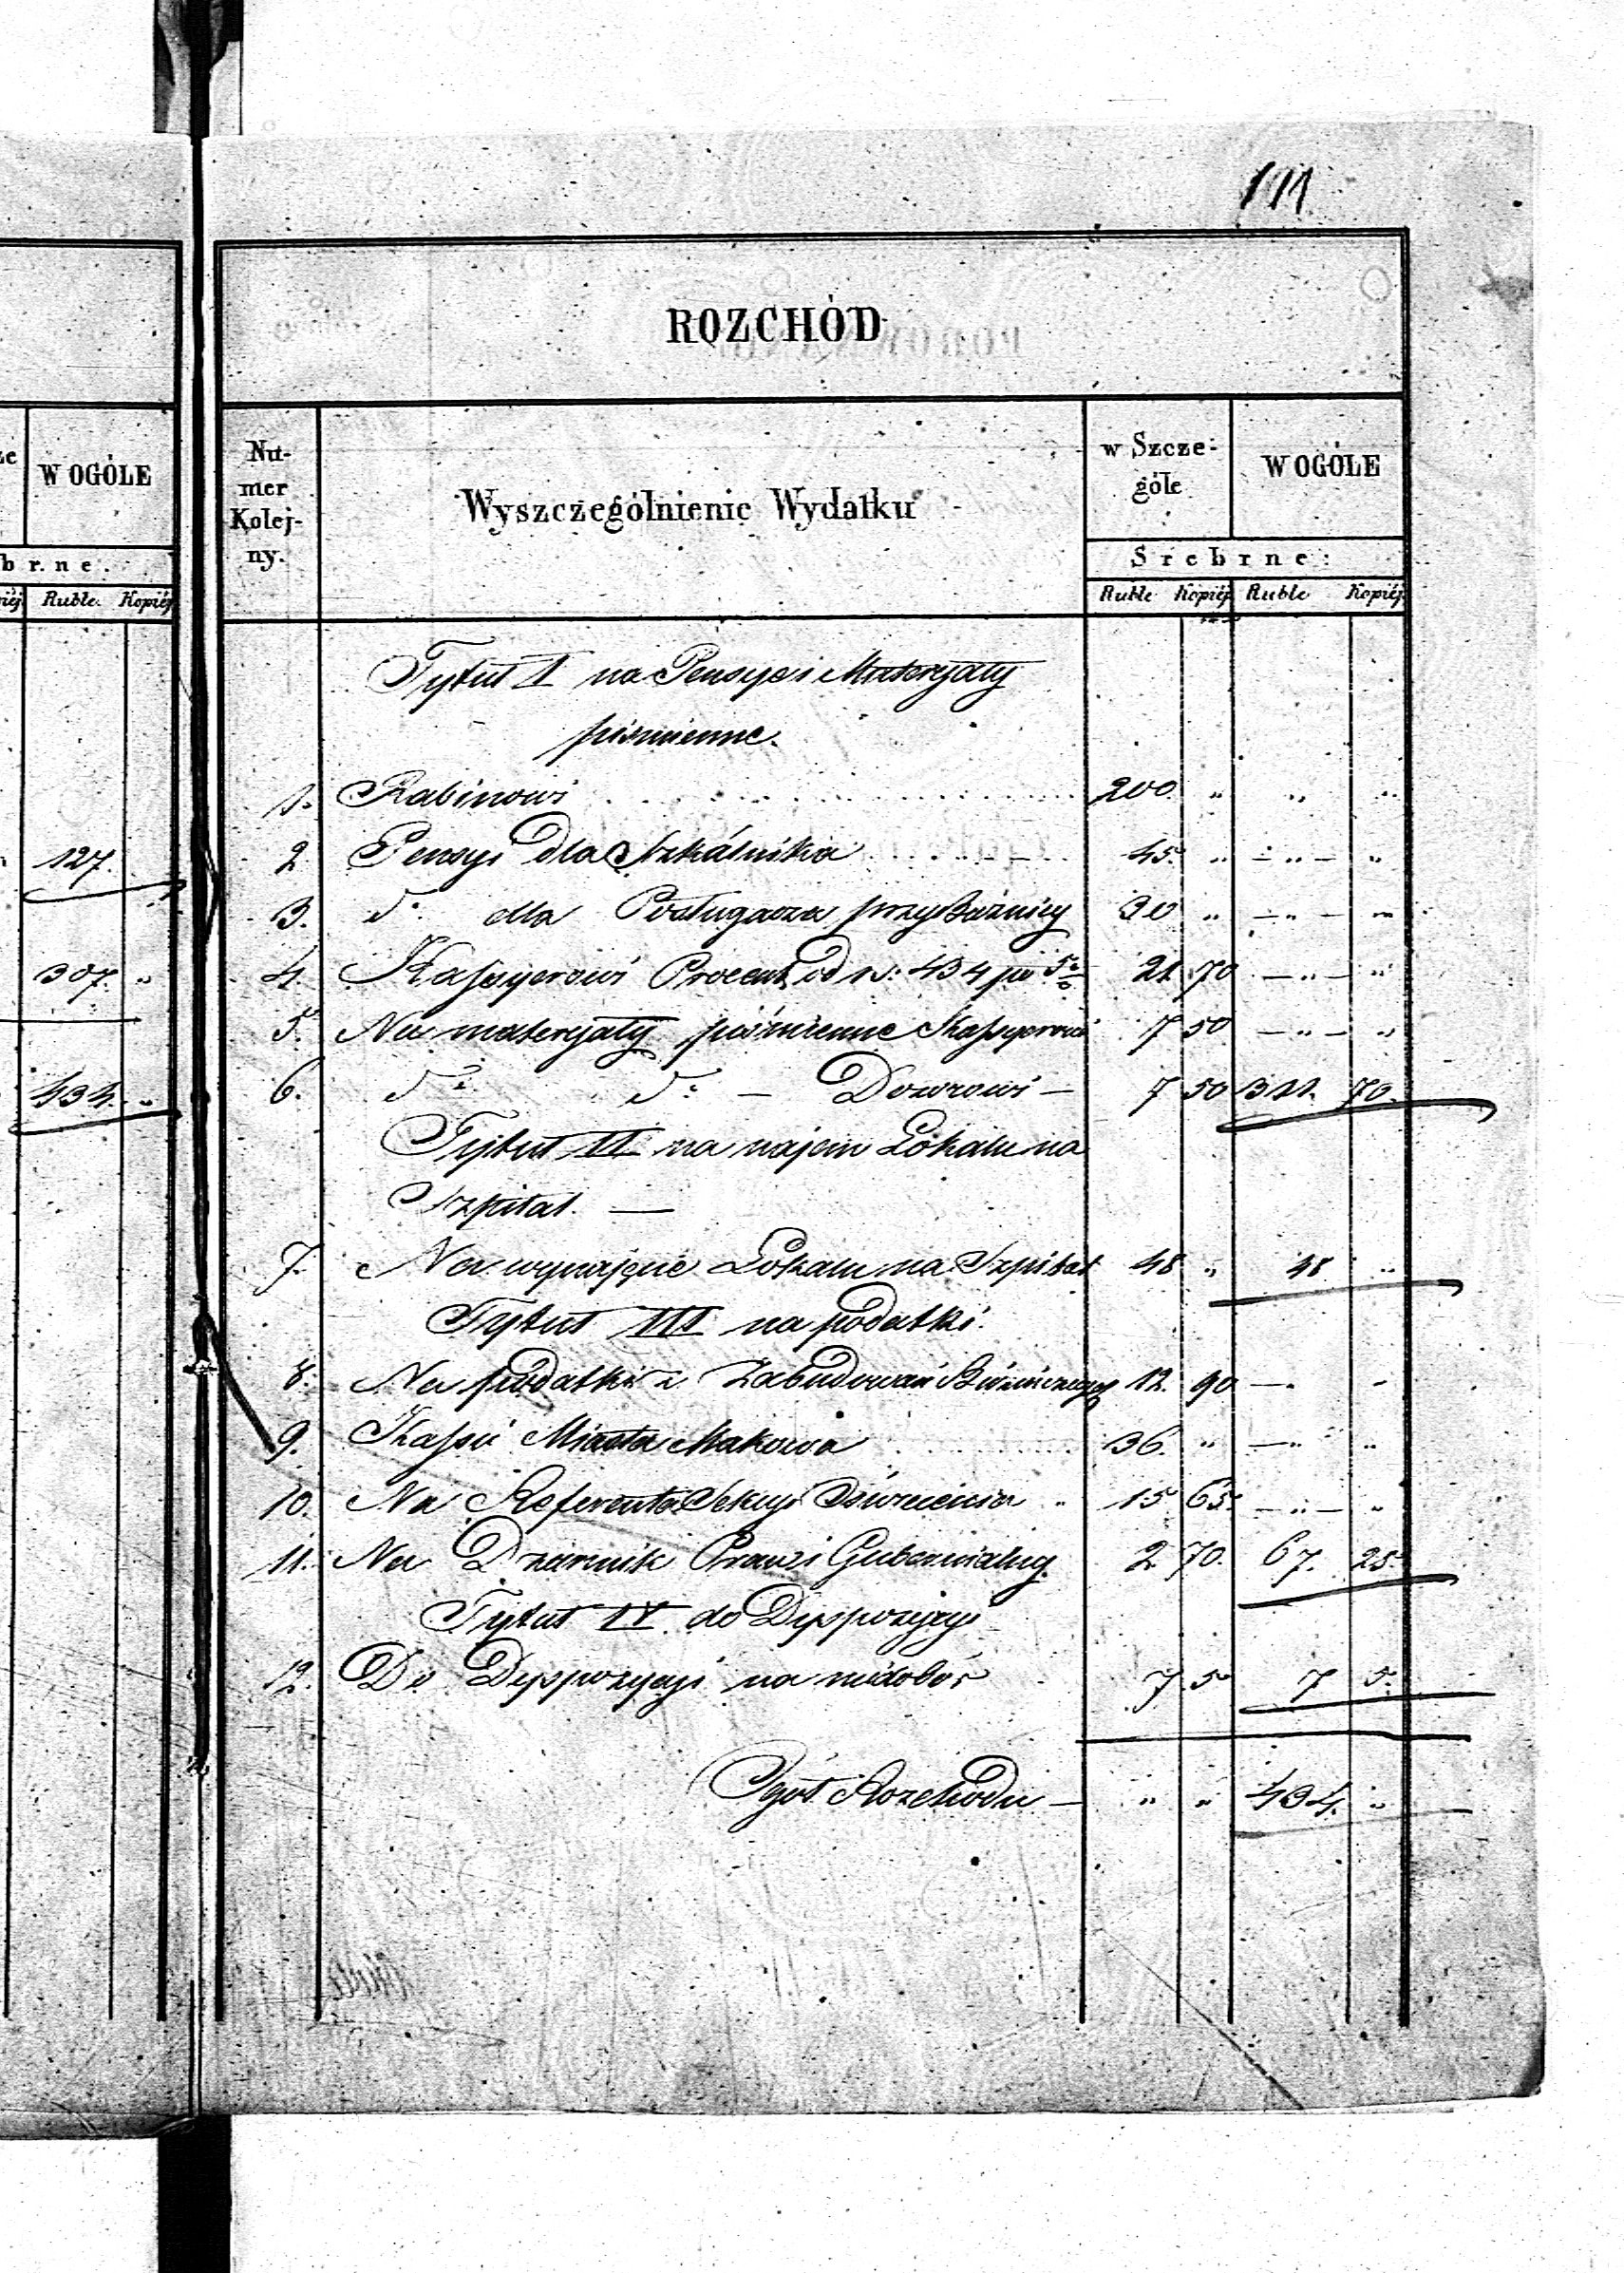 111
ROZCHÓD
ze
W OGÓLE
br.ne.
piéj.
Ruble. Kopiéj
127.
307. „
434. „
Nu-
mer
Kolej-
ny.
Wyszczególnienie Wydatku
w Szcze-
góle
W OGÓLE
Srebrne:
Ruble Kopiéj Ruble Kopiéj
Tytuł I na Pensye i Materyały
piśmienne.
1. Rabinowi 200 „ „ „
2 Pensyi dla Szkólnika 45 „ — „ — „
3. do dla Posługacza przy Bóżnicy 30 „ — „ — „
4. Kassyerowi Procent od rs: 434 po 5% 21 70 — „ — „
5. Na materyały piśmienne Kassyerowi 7 50 — „ — „
6. do do — Dozorowi — 7 50 311. 70.
Tytuł II na najem Lokalu na
Szpital. —
7. Na wynajęcie Lokalu na Szpital 48 „ 48 „
Tytuł III na podatki.
8. Na podatki z Zabudowań Bóżniczych 12. 90 — -
9. Kassie Miasta Makowa 36. „ — „ „
10. Na Referenta Sekcyi 15 65. — „ — „
11. Na Dziennik Praw i Gubernialny. 2 70. 67. 25.
Tytuł IV. do Dyspozycyi
12. Do Dyspozycyi na niedobór 7 5 7 5.
Ogół Rozchodu — „ „ 434. „